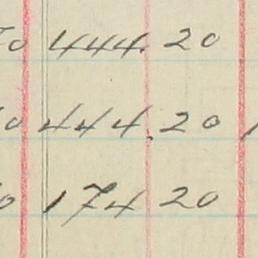 70 444. 20
0 444. 20
0 174 20